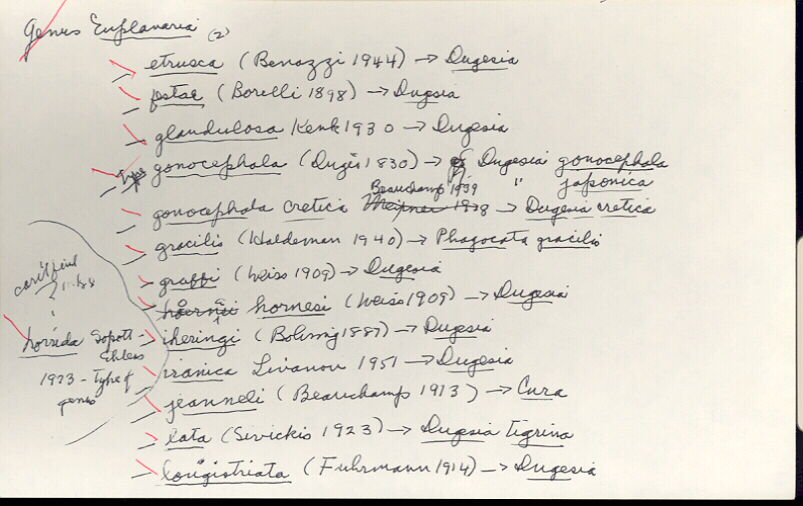 Genus Euplanaria (2)
etrusca (Benazzi 1944) → Dugesia
festae (Borelli 1898) → Dugesia
glandulosa Kenk 1930 → Dugesia
Type gonocephala (Dugès 1830) → Dugesia gonocephala
" japonica
Beauchamp 1939
gonocephala cretica Meixner 1938 → Dugesia cretica
gracilis (Haldeman 1940) → Phagocata gracilis
graffi (Weiss 1909) → Dugesia
hornesi (Weiss 1909) → Dugesia
iheringi (Bohmig 1887) → Dugesia
iranica Livanov 1951 → Dugesia
jeanneli (Beauchamp 1913) → Cura
lata (Sivickis 1923) → Dugesia tigrina
longistriata (Fuhrmann 1914) → Dugesia
horrida Sopott-
Ehlers
1973 - Type of
genus